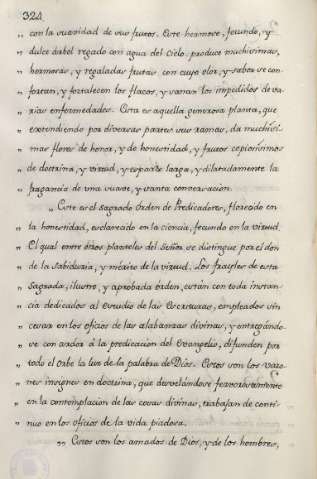 324
„ con la suavidad de sus frutos. Este hermoso, fecundo, y
„ dulce árbol regado con agua del Cielo produce muchisimas,
„ hermosas, y regaladas frutas con cuyo olor, y sabor se con-
„ fortan, y fortalecen los flacos, y sanan los impedidos de va-
„ rias enfermedades. Esta es aquella generosa planta, que
„ extendiendo por diversas partes sus ramas, da muchisi-
„ mas flores de honor, y de honestidad, y frutos copiosisimos
„ de doctrina, y virtud, y esparce larga, y dilatadamente la
„ fragancia de una suave, y santa conversacion.
„ Este es el sagrado Orden de Predicadores, florecido en
„ la honestidad, esclarecido en la ciencia, fecundo en la virtud.
„ El qual entre otros planteles del Señor se distingue por el don
„ de la Sabiduria, y mérito de la virtud. Los frayles de esta
„ Sagrada, ilustre, y aprobada orden, están con toda instan-
„ cia dedicados al estudio de las Escrituras, empleados sin
„ cesar en los oficios de las alabanzas divinas, y entregándo-
„ se con ardor á la predicacion del Evangelio, difunden por
„ todo el Orbe la luz de la palabra de Dios. Estos son los varo-
„ nes insignes en doctrina, que desvelándose fervorosamente
„ en la contemplacion de las cosas divinas, trabajan de conti-
„ nuo en los oficios de la vida piadosa.
„ Estos son los amados de Dios, y de los hombres,